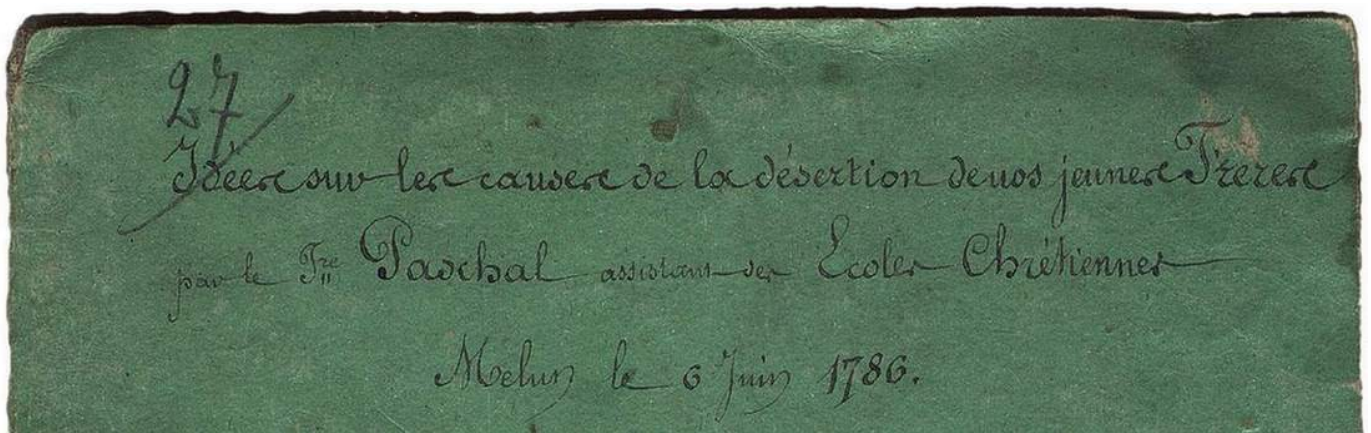 27
Idées sur les causes de la désertion de nos jeunes Frères
par le Fre Paschal assistant des Ecoles Chrétiennes
Melun le 6 Juin 1786.